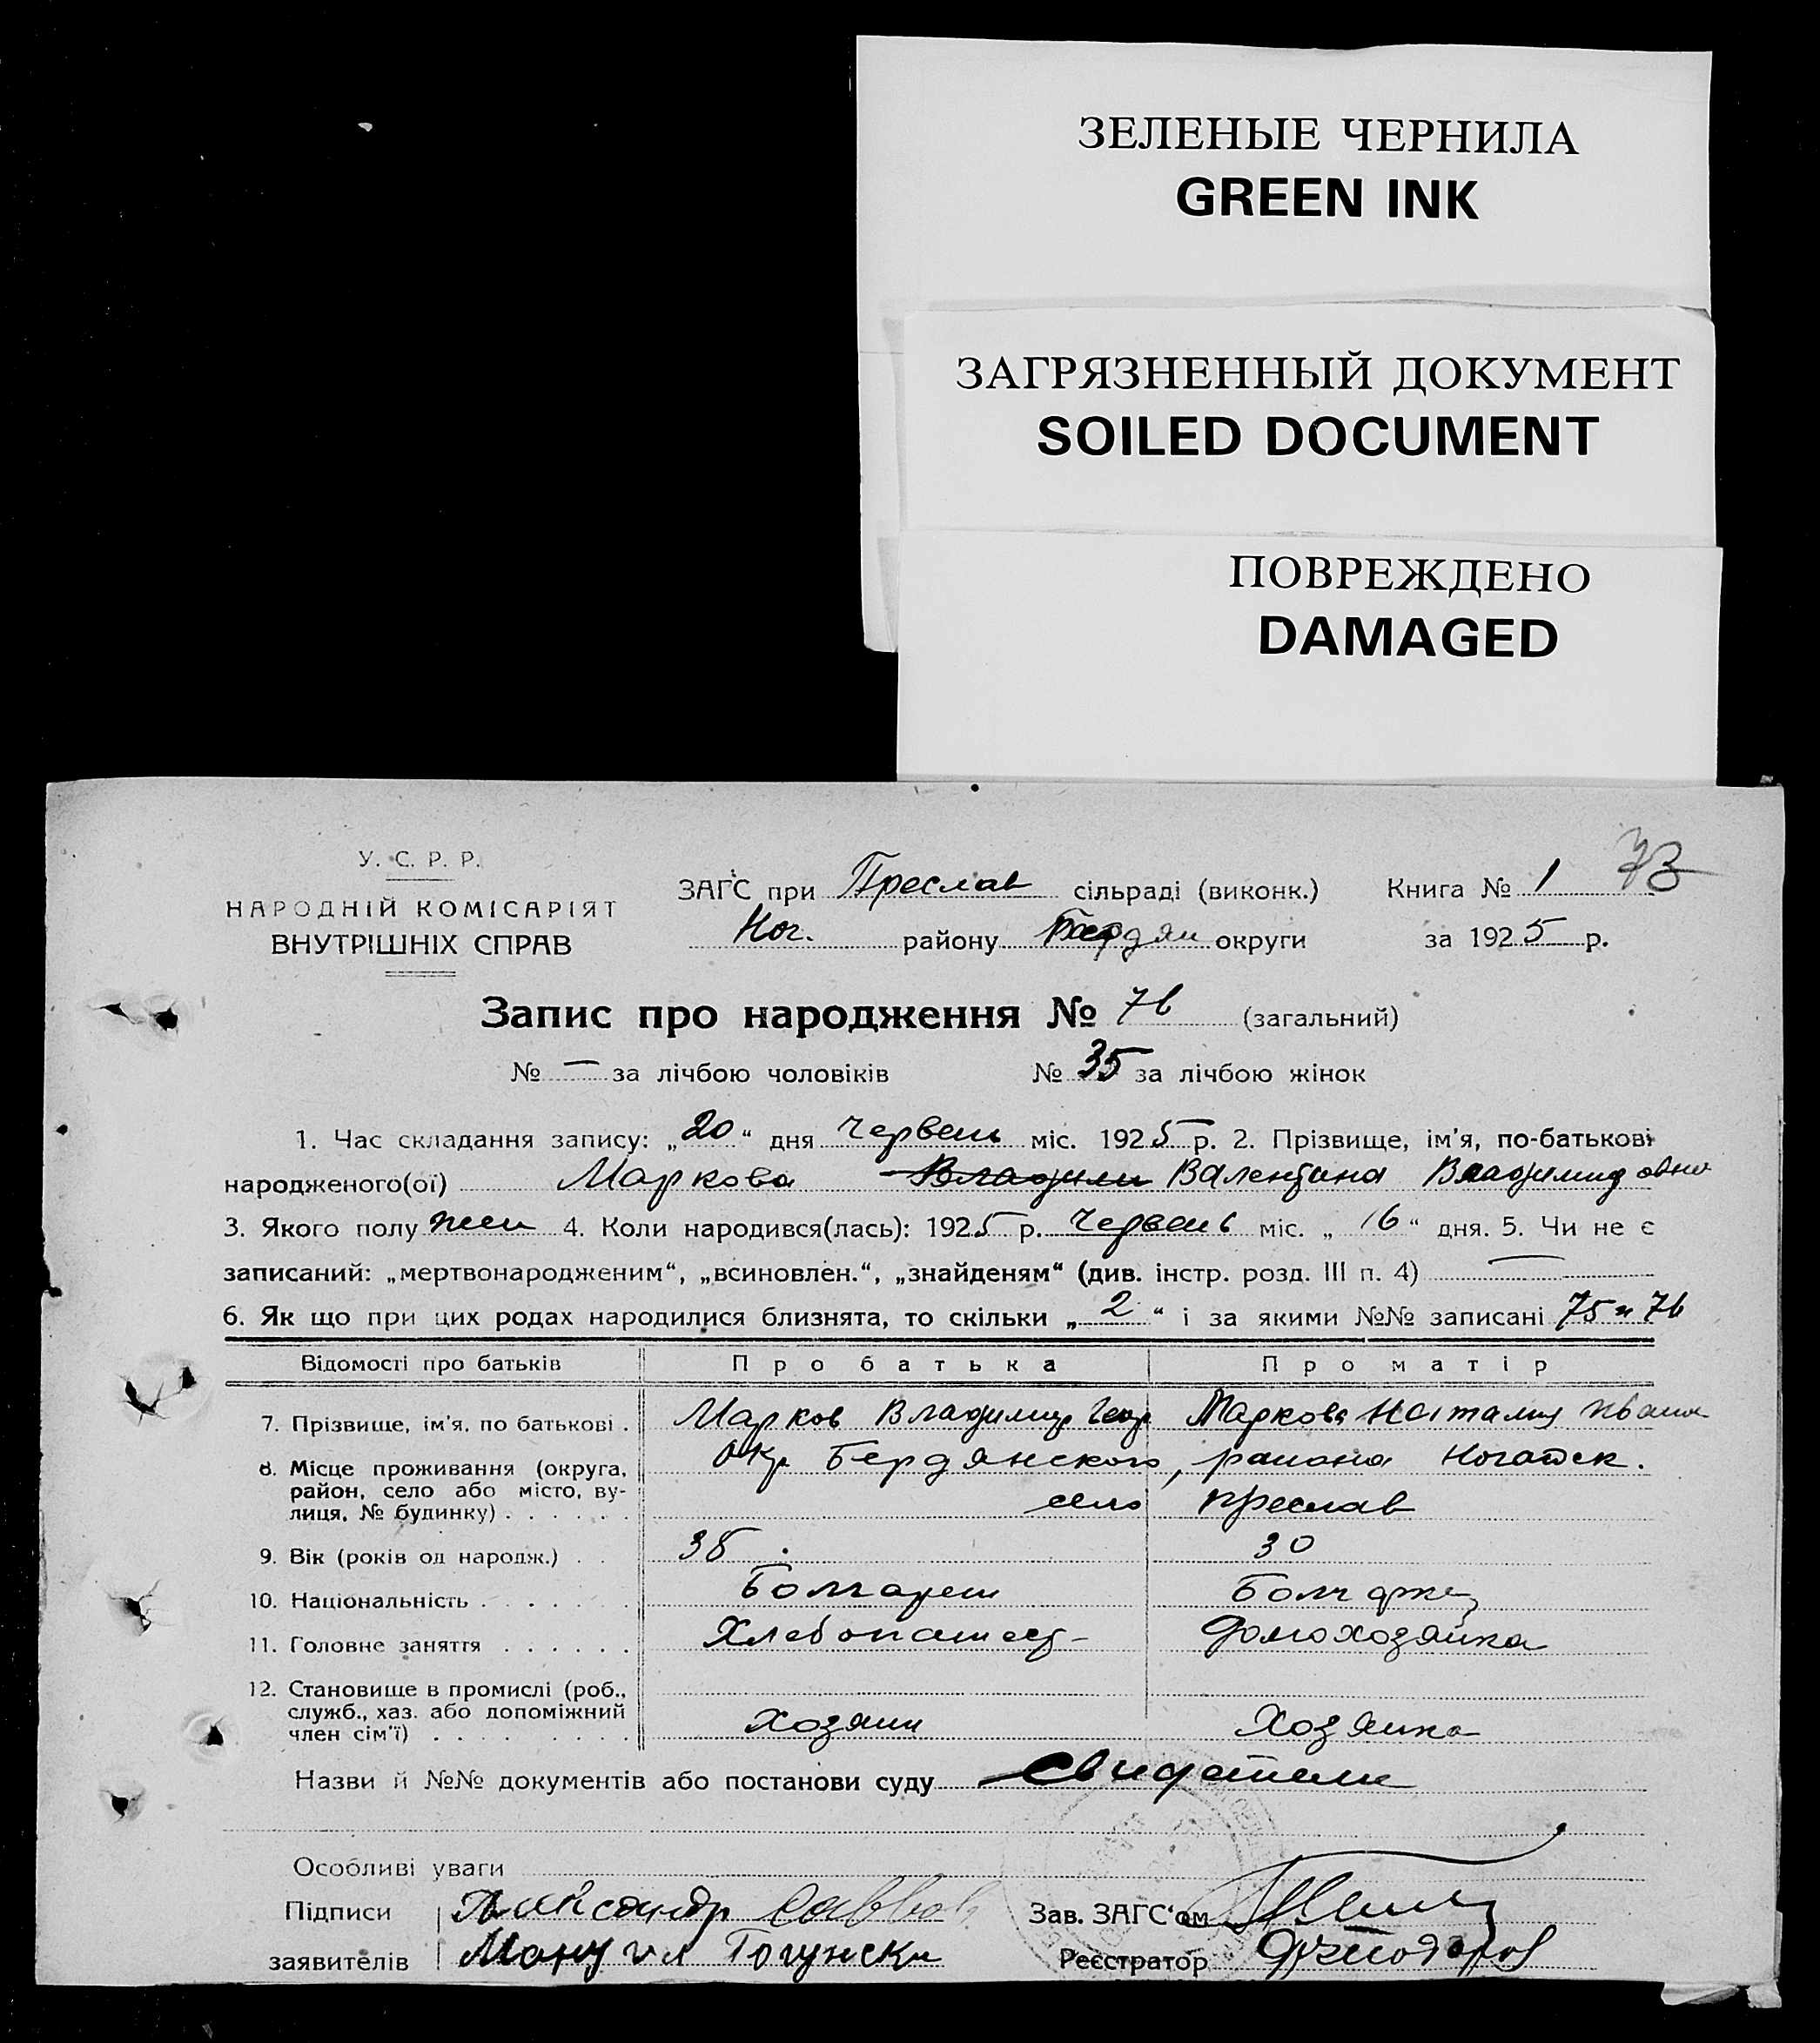 ЗЕЛЕНЫЕ ЧЕРНИЛА
GREEN INK
ЗАГРЯЗНЕННЫЙ ДОКУМЕНТ
SOILED DOCUMENT
ПОВРЕЖДЕНО
DAMAGED
73
У. С. Р. Р.
НАРОДНІЙ КОМІСАРІЯТ
ВНУТРІШНІХ СПРАВ
ЗАГС при Преслав сільраді (виконк.) Книга № 1
Ног. району Бердян округи за 1925 р.
Запис про народження № 76 (загальний)
№ — за лічбою чоловіків № 35 за лічбою жінок
1. Час складання запису: „20“ дня Червень міс. 1925 р. 2. Прізвище, ім'я, по-батькові
народженого(ої) Маркова Владими Валентина Владимировна
3. Якого полу жен 4. Коли народився(лась): 1925 р. Червень міс. „16“ дня. 5. Чи не є
записаний: „мертвонародженим“, „всиновлен.“, „знайденям“ (див. інстр. розд. III п. 4) —
6. Як що при цих родах народилися близнята, то скільки „2“ і за якими №№ записані 75 и 76
Відомості про батьків Про батька Про матір
7. Прізвище, ім'я, по батькові . Марков Владимир Геор Маркова Наталия Ивани
8. Місце проживання (округа, район, село або місто, вулиця, № будинку) . . . . . . Окр Бердянского, района Ногайск.
село Преслав
9. Вік (років од народж.) . . 38 30
10. Національність . . . . . . . Болгарин Болгарка
11. Головне заняття . . . . . . Хлебопашест- Домохозяйка
12. Становище в промислі (роб., служб., хаз. або допоміжний член сім'ї) . . . . . . . . . Хозяин Хозяйка
Назви й №№ документів або постанови суду Свидетели
Особливі уваги
Підписи Александр Зав. ЗАГС'ом
заявителів Мануил Реєстратор